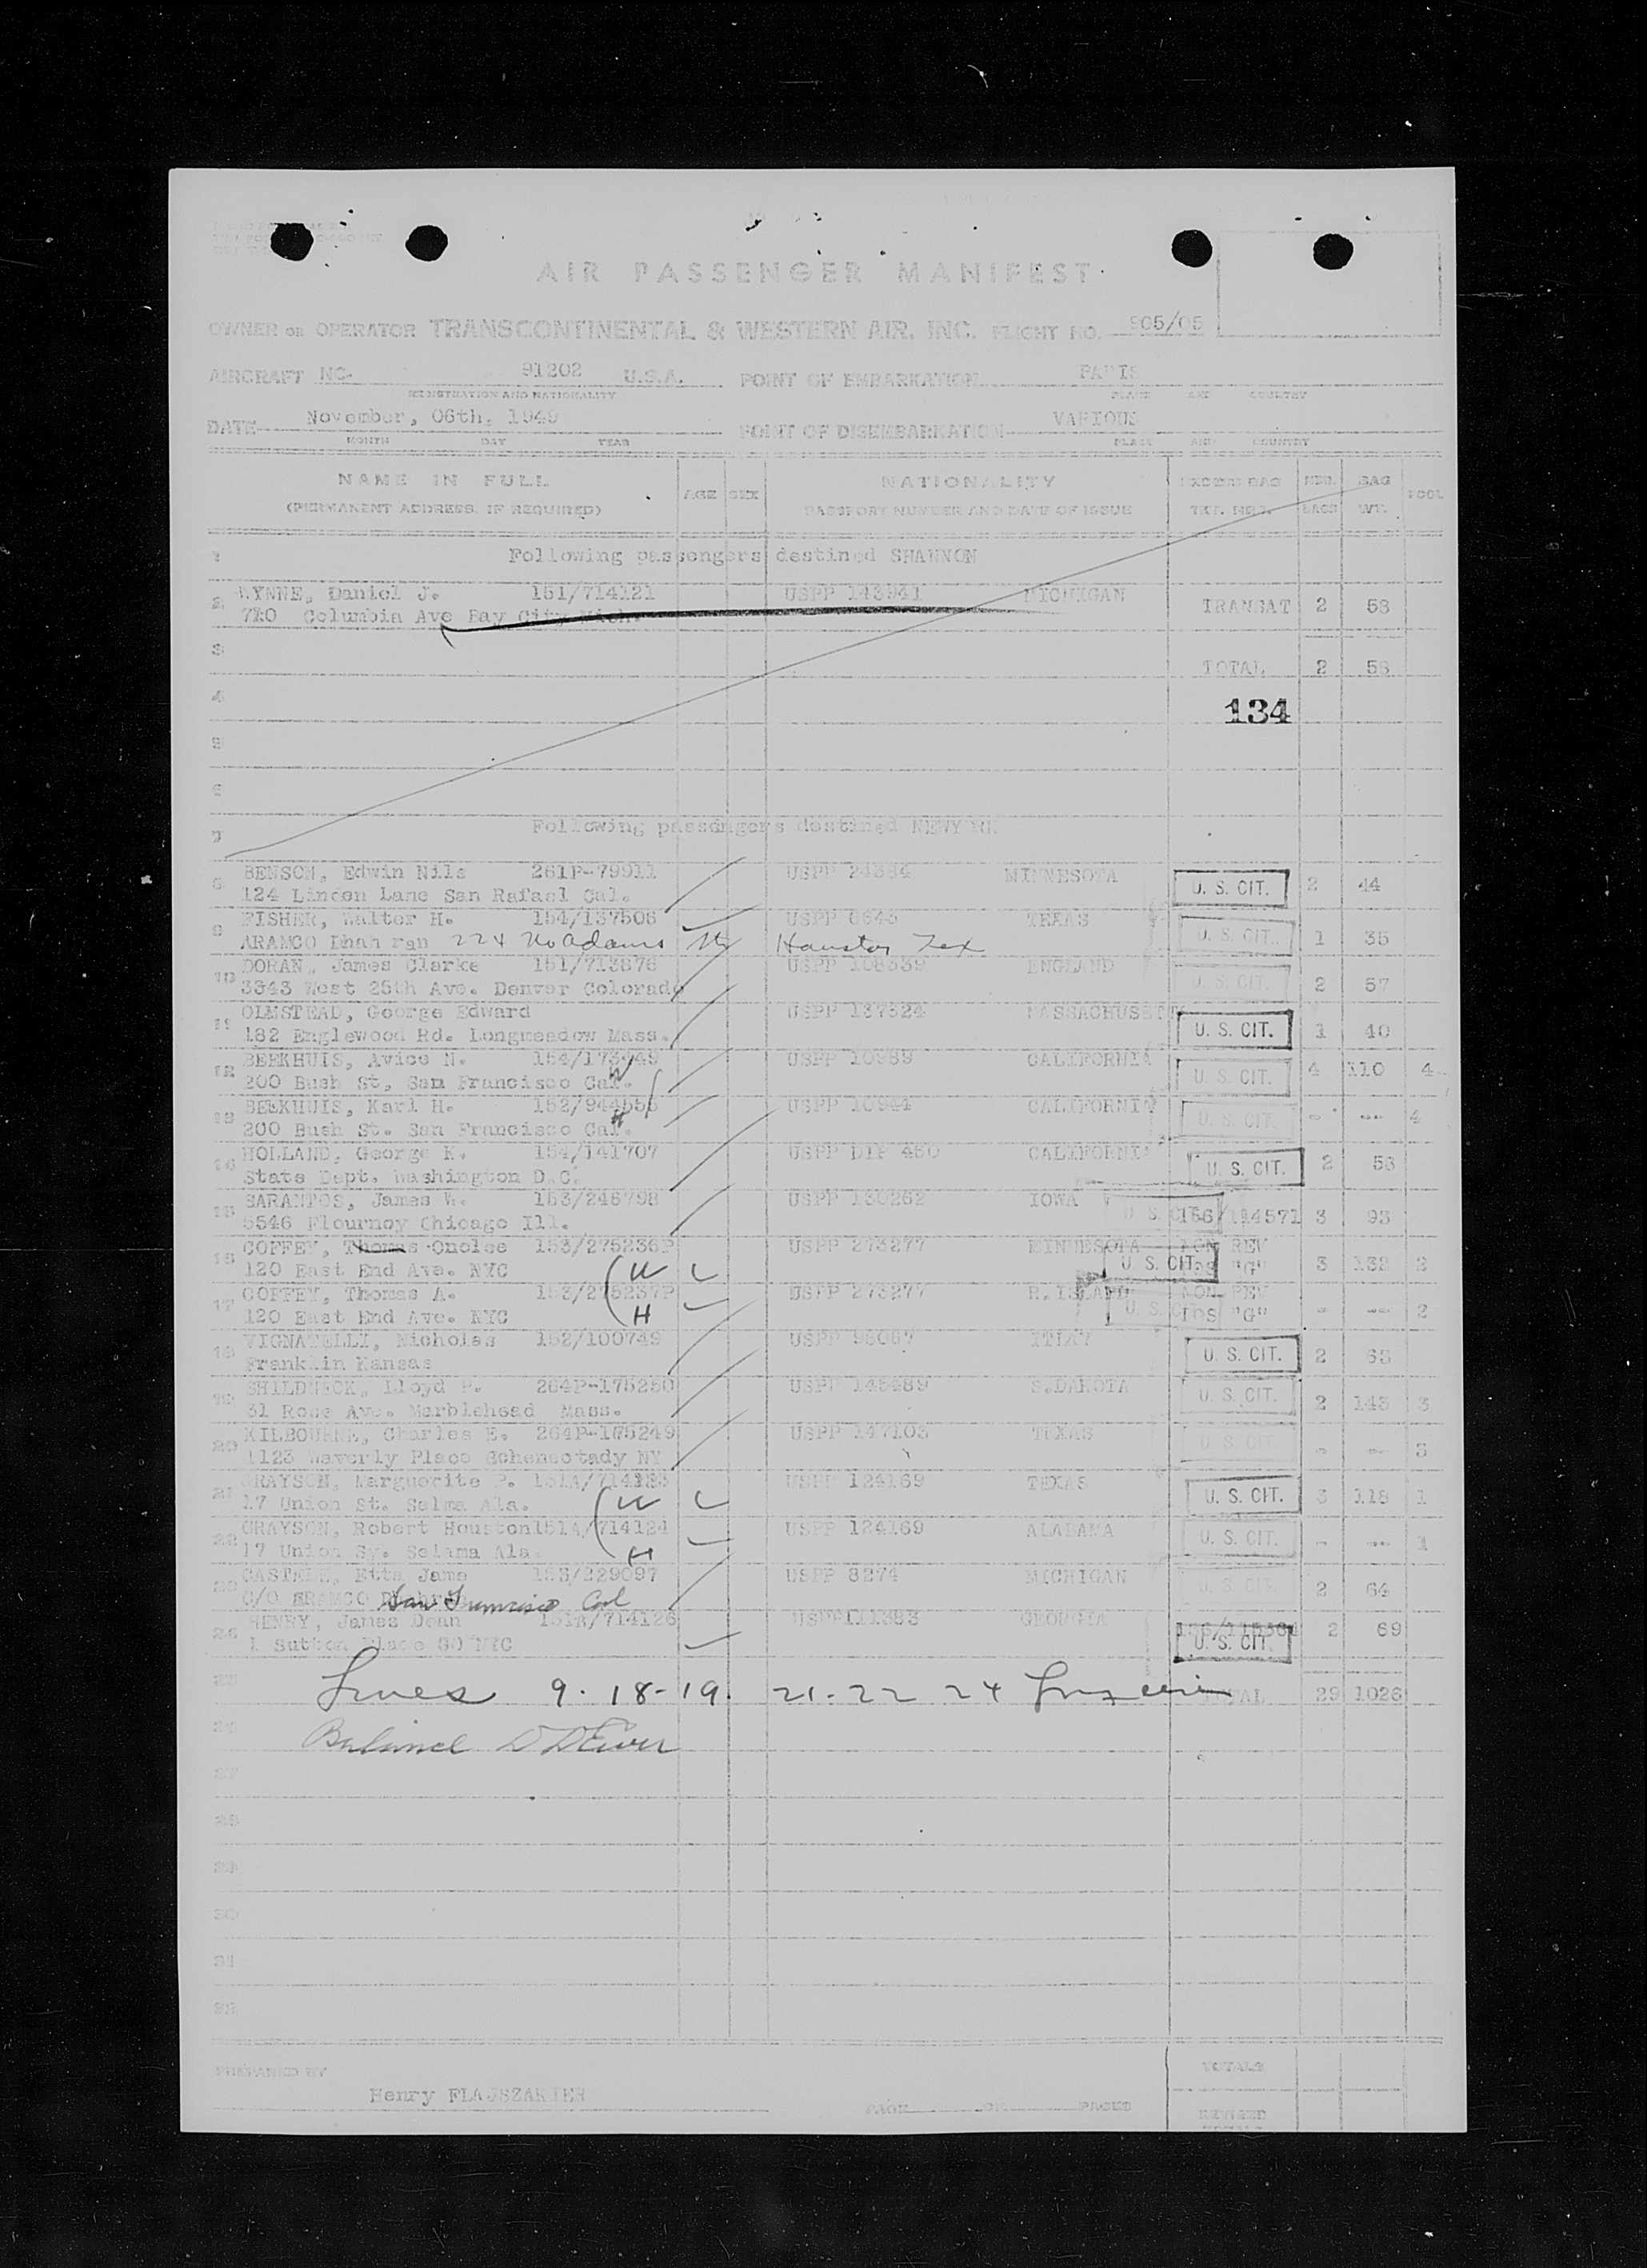 AIR PASSENGER MANIFEST
OWNER OR OPERATOR TRANSCONTINENTAL & WESTERN AIR, INC. FLIGHT NO. 905/05
AIRCRAFT NC- 91202 U.S.A. POINT OF EMBARKATION PARIS
REGISTRATION AND NATIONALITY PLACE AND COUNTRY
DATE November, 06th, 1949 POINT OF DISEMBARKATION VARIOUS
MONTH DAY YEAR PLACE AND COUNTRY
NAME IN FULL AGE SEX NATIONALITY EXCESS BAG NBR. BAG POOL
(PERMANENT ADDRESS, IF REQUIRED) PASSPORT NUMBER AND DATE OF ISSUE TKT. NBR. BAGS WT.
1 Following passengers destined SHANNON
2 WYNNE, Daniel J. 151/714121 USPP 143941 MICHIGAN TRANSAT 2 58
710 Columbia Ave Bay City Mich.
3 TOTAL 2 58
4 134
5
6
7 Following passengers destined NEWYORK
8 BENSON, Edwin Nils 261P-79911 USPP 24384 MINNESOTA U. S. CIT. 2 44
124 Linden Lane San Rafael Cal.
9 FISHER, Walter H. 154/137506 USPP 6645 TEXAS U. S. CIT. 1 35
ARAMCO Dhahran 224 No Adams Houston Tex
10 DORAN, James Clarke 151/713876 USPP 108539 ENGLAND U. S. CIT. 2 57
3343 West 25th Ave. Denver Colorado
11 OLMSTEAD, George Edward USPP 137324 MASSACHUSETTS U. S. CIT. 1 40
182 Englewood Rd. Longmeadow Mass.
12 BEEKHUIS, Avice N. 154/173949 USPP 10989 CALIFORNIA U. S. CIT. 4 110 4
200 Bush St, San Francisco Cal. W
13 BEEKHUIS, Karl H. 152/944555 USPP 10944 CALIFORNIA U. S. CIT. - --- 4
200 Bush St. San Francisco Cal. H
14 HOLLAND, George K. 154/141707 USPP DIP 450 CALIFORNIA U. S. CIT. 2 53
State Dept. Washington D.C.
15 SARANTOS, James W. 153/246798 USPP 130262 IOWA U. S. CIT. 156/114571 3 93
5546 Flournoy Chicago Ill.
16 COFFEY, Thomas Onolee 153/275236P USPP 273277 MINNESOTA NON REV 3 132 2
120 East End Ave. NYC W U. S. CIT. "G"
17 COFFEY, Thomas A. 153/275237P USPP 273277 R.ISLAND NON REV - --- 2
120 East End Ave. NYC H U. S. CIT. POS "G"
18 VIGNATELLI, Nicholas 152/100749 USPP 93067 ITALY U. S. CIT. 2 65
Franklin Kansas
19 SHILDNECK, Lloyd P. 264P-175250 USPP 145489 S.DAKOTA U. S. CIT. 2 143 3
31 Rose Ave. Marblehead Mass.
20 KILBOURNE, Charles E. 264P-175249 USPP 147103 TEXAS U. S. CIT. - --- 3
1123 Waverly Place Schenectady NY
21 GRAYSON, Marguerite P. 151A/714123 USPP 124169 TEXAS U. S. CIT. 3 118 1
17 Union St. Selma Ala. W
22 GRAYSON, Robert Houston 151A/714124 USPP 124169 ALABAMA U. S. CIT. - --- 1
17 Union Sy. Selama Ala. H
23 CASTELE, Etta Jame 153/229097 USPP 8274 MICHIGAN U. S. CIT. 2 64
C/O ERAMCO San Francisco Cal
24 HENRY, James Dean 151A/714126 USPP111383 GEORGIA 2 69
1 Sutton Place SO NYC U. S. CIT.
25 Lines 9. 18-19. 21-22 24 TOTAL 29 1026
26 Balance
27
28
29
30
31
32
PREPARED BY TOTALS
Henry FLAJSZAKIER
PAGE OF PAGES REVISED